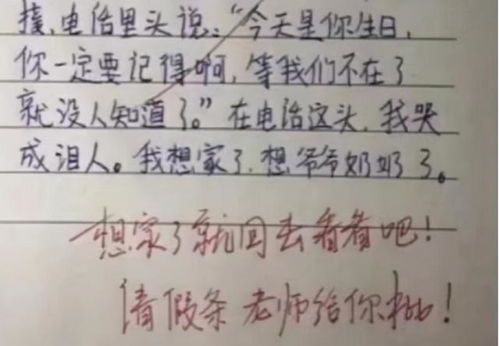 接,电话里头说:“今天是你生日,
你一定要记得啊,等我们不在了
就没人知道了。”在电话这头,我哭
成泪人。我想家了,想爷爷奶奶了。
想家了就回去看看吧!
请假条 老师给你批!